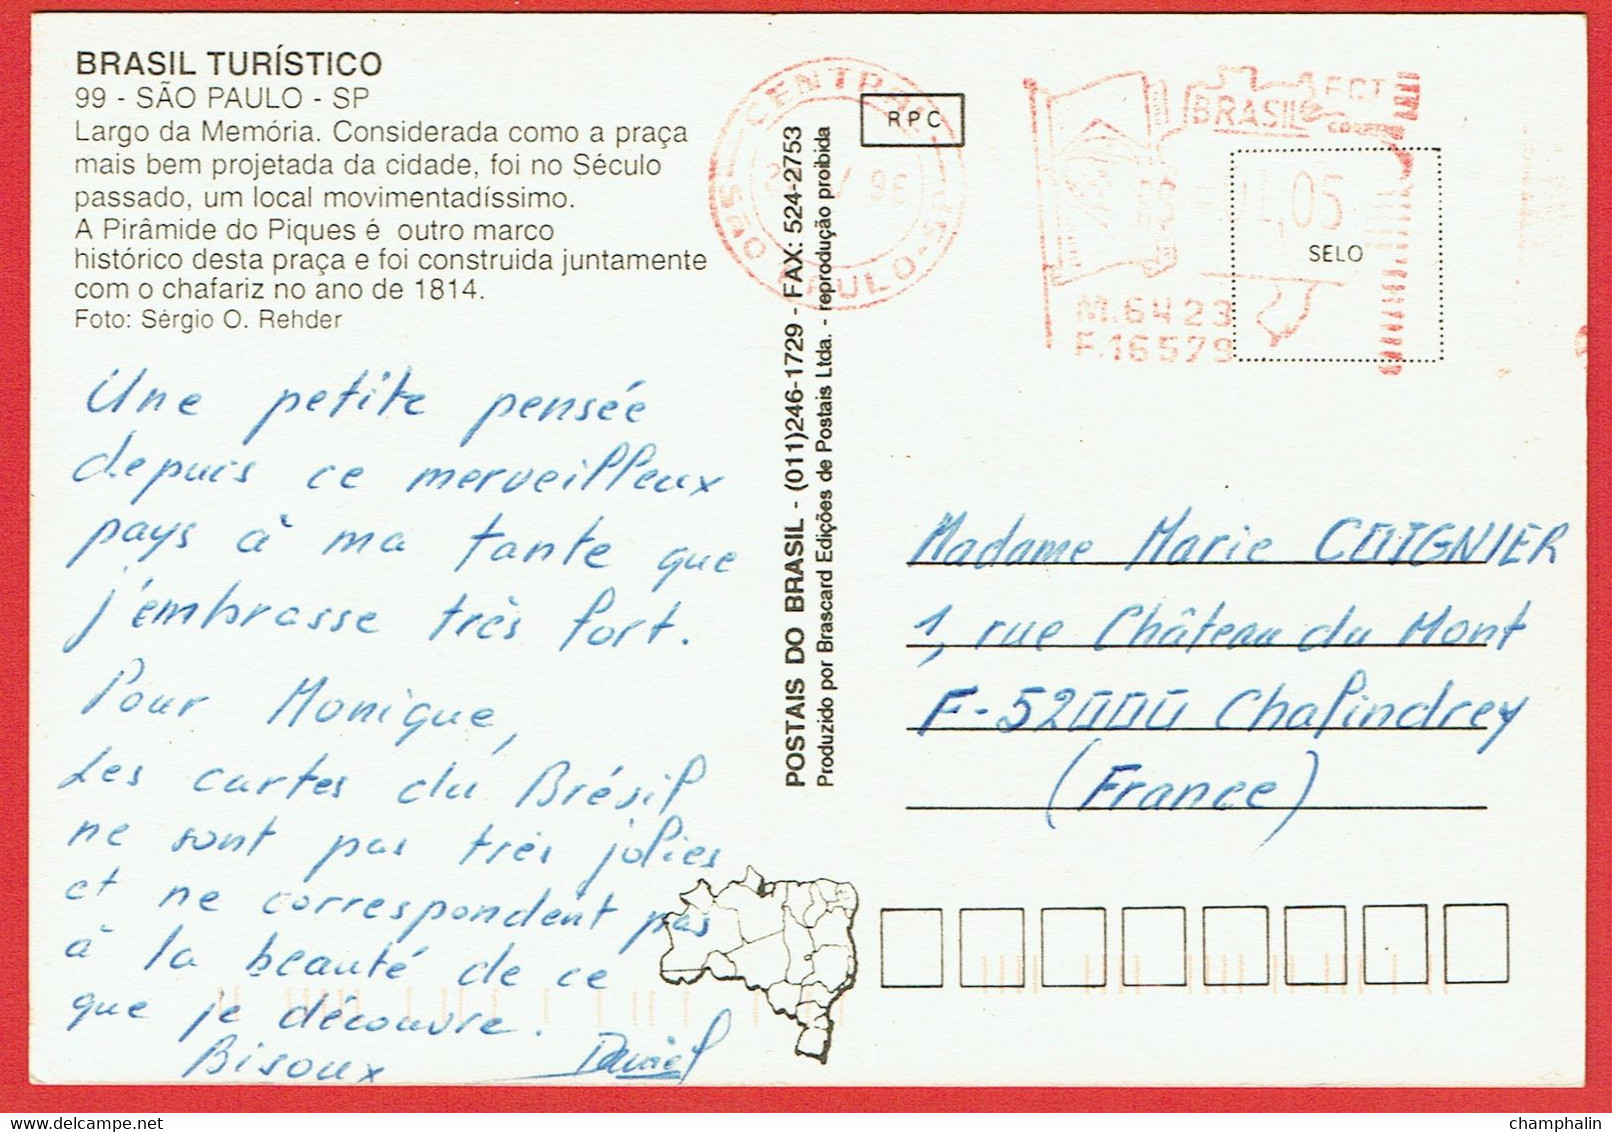 BRASIL TURÍSTICO
99 - SÃO PAULO - SP
Largo da Memória. Considerada como a praça
mais bem projetada da cidade, foi no Século
passado, um local movimentadíssimo.
A Pirâmide do Piques é outro marco
histórico desta praça e foi construida juntamente
com o chafariz no ano de 1814.
Foto: Sérgio O. Rehder
Une petite pensée
depuis ce merveilleux
pays à ma tante que
j'embrasse très fort.
Pour Monique,
Les cartes du Brésil
ne sont pas très jolies
et ne correspondent pas
à la beauté de ce
que je découvre.
Bisoux Daniel
POSTAIS DO BRASIL - (011)246-1729 - FAX: 524-2753
Produzido por Brascard Edições de Postais Ltda. - reprodução proibida
CENTRAL
96
SÃO PAULO-SP
RPC
BRASIL ECT
1,05
SELO
M.6423
F.16579
Madame Marie COIGNIER
1, rue Château du Mont
F-52000 Chalindrey
(France)
champhalin